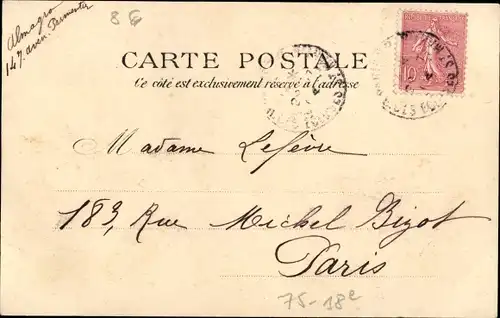 Almagro
147. aven. Parmentier
8 6
CARTE POSTALE
Ce côté est exclusivement réservé à l'adresse
10
Madame Lefèvre
183, Rue Michel Bizot
Paris
75-18e